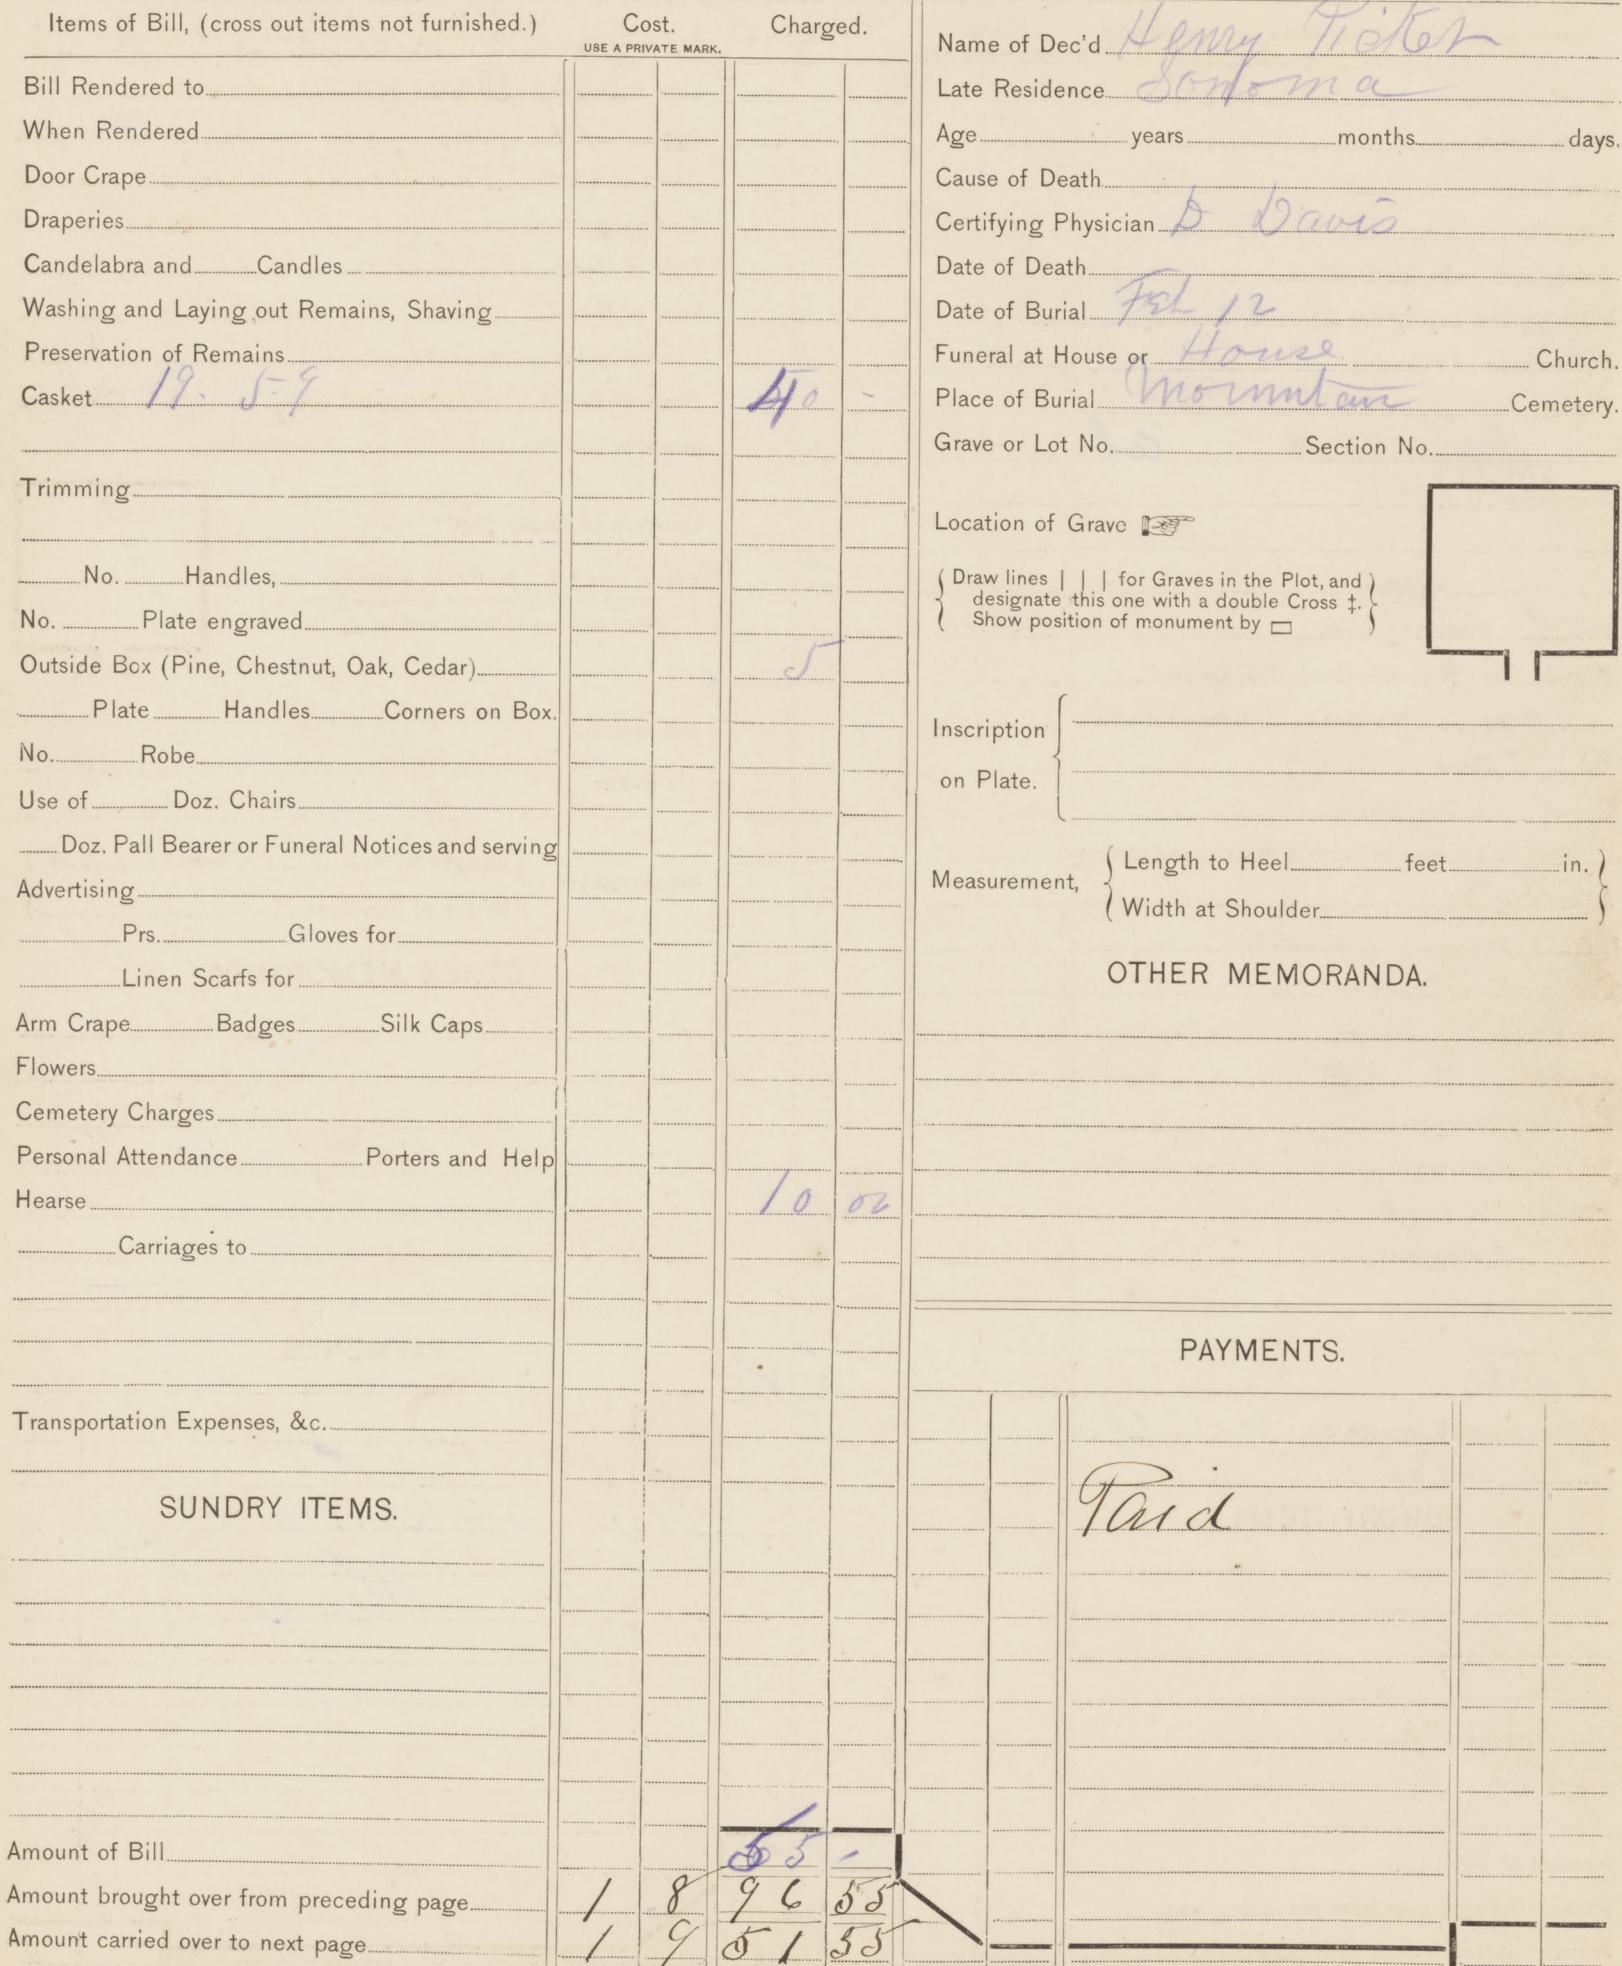 Items of Bill, (cross out items not furnished.) Cost. Charged.
USE A PRIVATE MARK.
Bill Rendered to
When Rendered
Door Crape
Draperies
Candelabra and Candles
Washing and Laying out Remains, Shaving
Preservation of Remains
Casket 19. 5-9 40 -
Trimming
No. Handles,
No. Plate engraved
Outside Box (Pine, Chestnut, Oak, Cedar) 5
Plate Handles Corners on Box.
No. Robe
Use of Doz. Chairs
Doz. Pall Bearer or Funeral Notices and serving
Advertising
Prs. Gloves for
Linen Scarfs for
Arm Crape Badges Silk Caps
Flowers
Cemetery Charges
Personal Attendance Porters and Help
Hearse 10 00
Carriages to
Transportation Expenses, &c.
SUNDRY ITEMS.
Amount of Bill 55 -
Amount brought over from preceding page 1 8 96 55
Amount carried over to next page 1 9 51 55
Name of Dec'd Henry Picket
Late Residence Sonoma
Age years months days.
Cause of Death
Certifying Physician D Davis
Date of Death
Date of Burial Feb 12
Funeral at House or House Church.
Place of Burial Mountain Cemetery.
Grave or Lot No. Section No.
Location of Grave ☞
Draw lines | | | for Graves in the Plot, and
designate this one with a double Cross ‡.
Show position of monument by ▭
Inscription
on Plate.
Measurement,
Length to Heel feet in.
Width at Shoulder
OTHER MEMORANDA.
PAYMENTS.
Paid